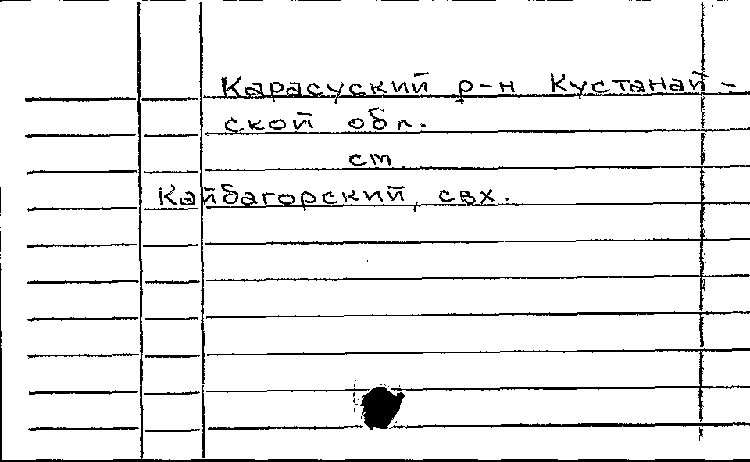 Карасуский р-н Кустанай-
ской обл.
см.
Кайбагорский, свх.